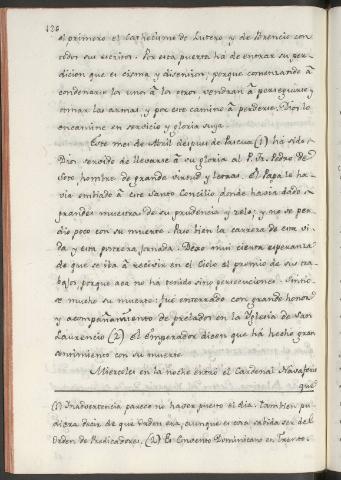 126
el primero el Cathecismo de Lutero y de Brencio con
todos sus escritos. Por esta puerta ha de entrar su per-
dicion que es cisma y disension; porque comenzando á
condenarse los unos á los otros vendrán á perseguirse,
tomar las armas, y por este camino á perderse. Dios lo
encamine en servicio y gloria suya.
Este mes de Abril despues de Pascua (1) ha sido
Dios servido de llevarse á su gloria al P. Fr. Pedro de
Soto, hombre de grande virtud y letras. El Papa le ha-
via embiado á este Santo Concilio, donde havia dado
grandes muestras de su prudencia y zelo; y no se per-
dio poco con su muerte. Pasó bien la carrera de esta vi-
da y esta postrera jornada. Dexó mui cierta esperanza
de que se iba á recivir en el Cielo el premio de sus tra-
bajos, porque aca no ha tenido sino persecuciones. Sintio-
se mucho su muerte: fué enterrado con grande honor
y acompañamiento de prelados en la Iglesia de San
Laurencio (2) El Emperador dicen que há hecho gran
sentimiento con su muerte.
Miercoles en la noche entró el Cardenal Navajerio
que
(1) Inadvertencia parece no haver puesto el dia. Tambien pu-
diera decir de que Orden era, aunque es cosa sabida ser del
Orden de Predicadores. (2) Es Convento Dominicano en Trento.